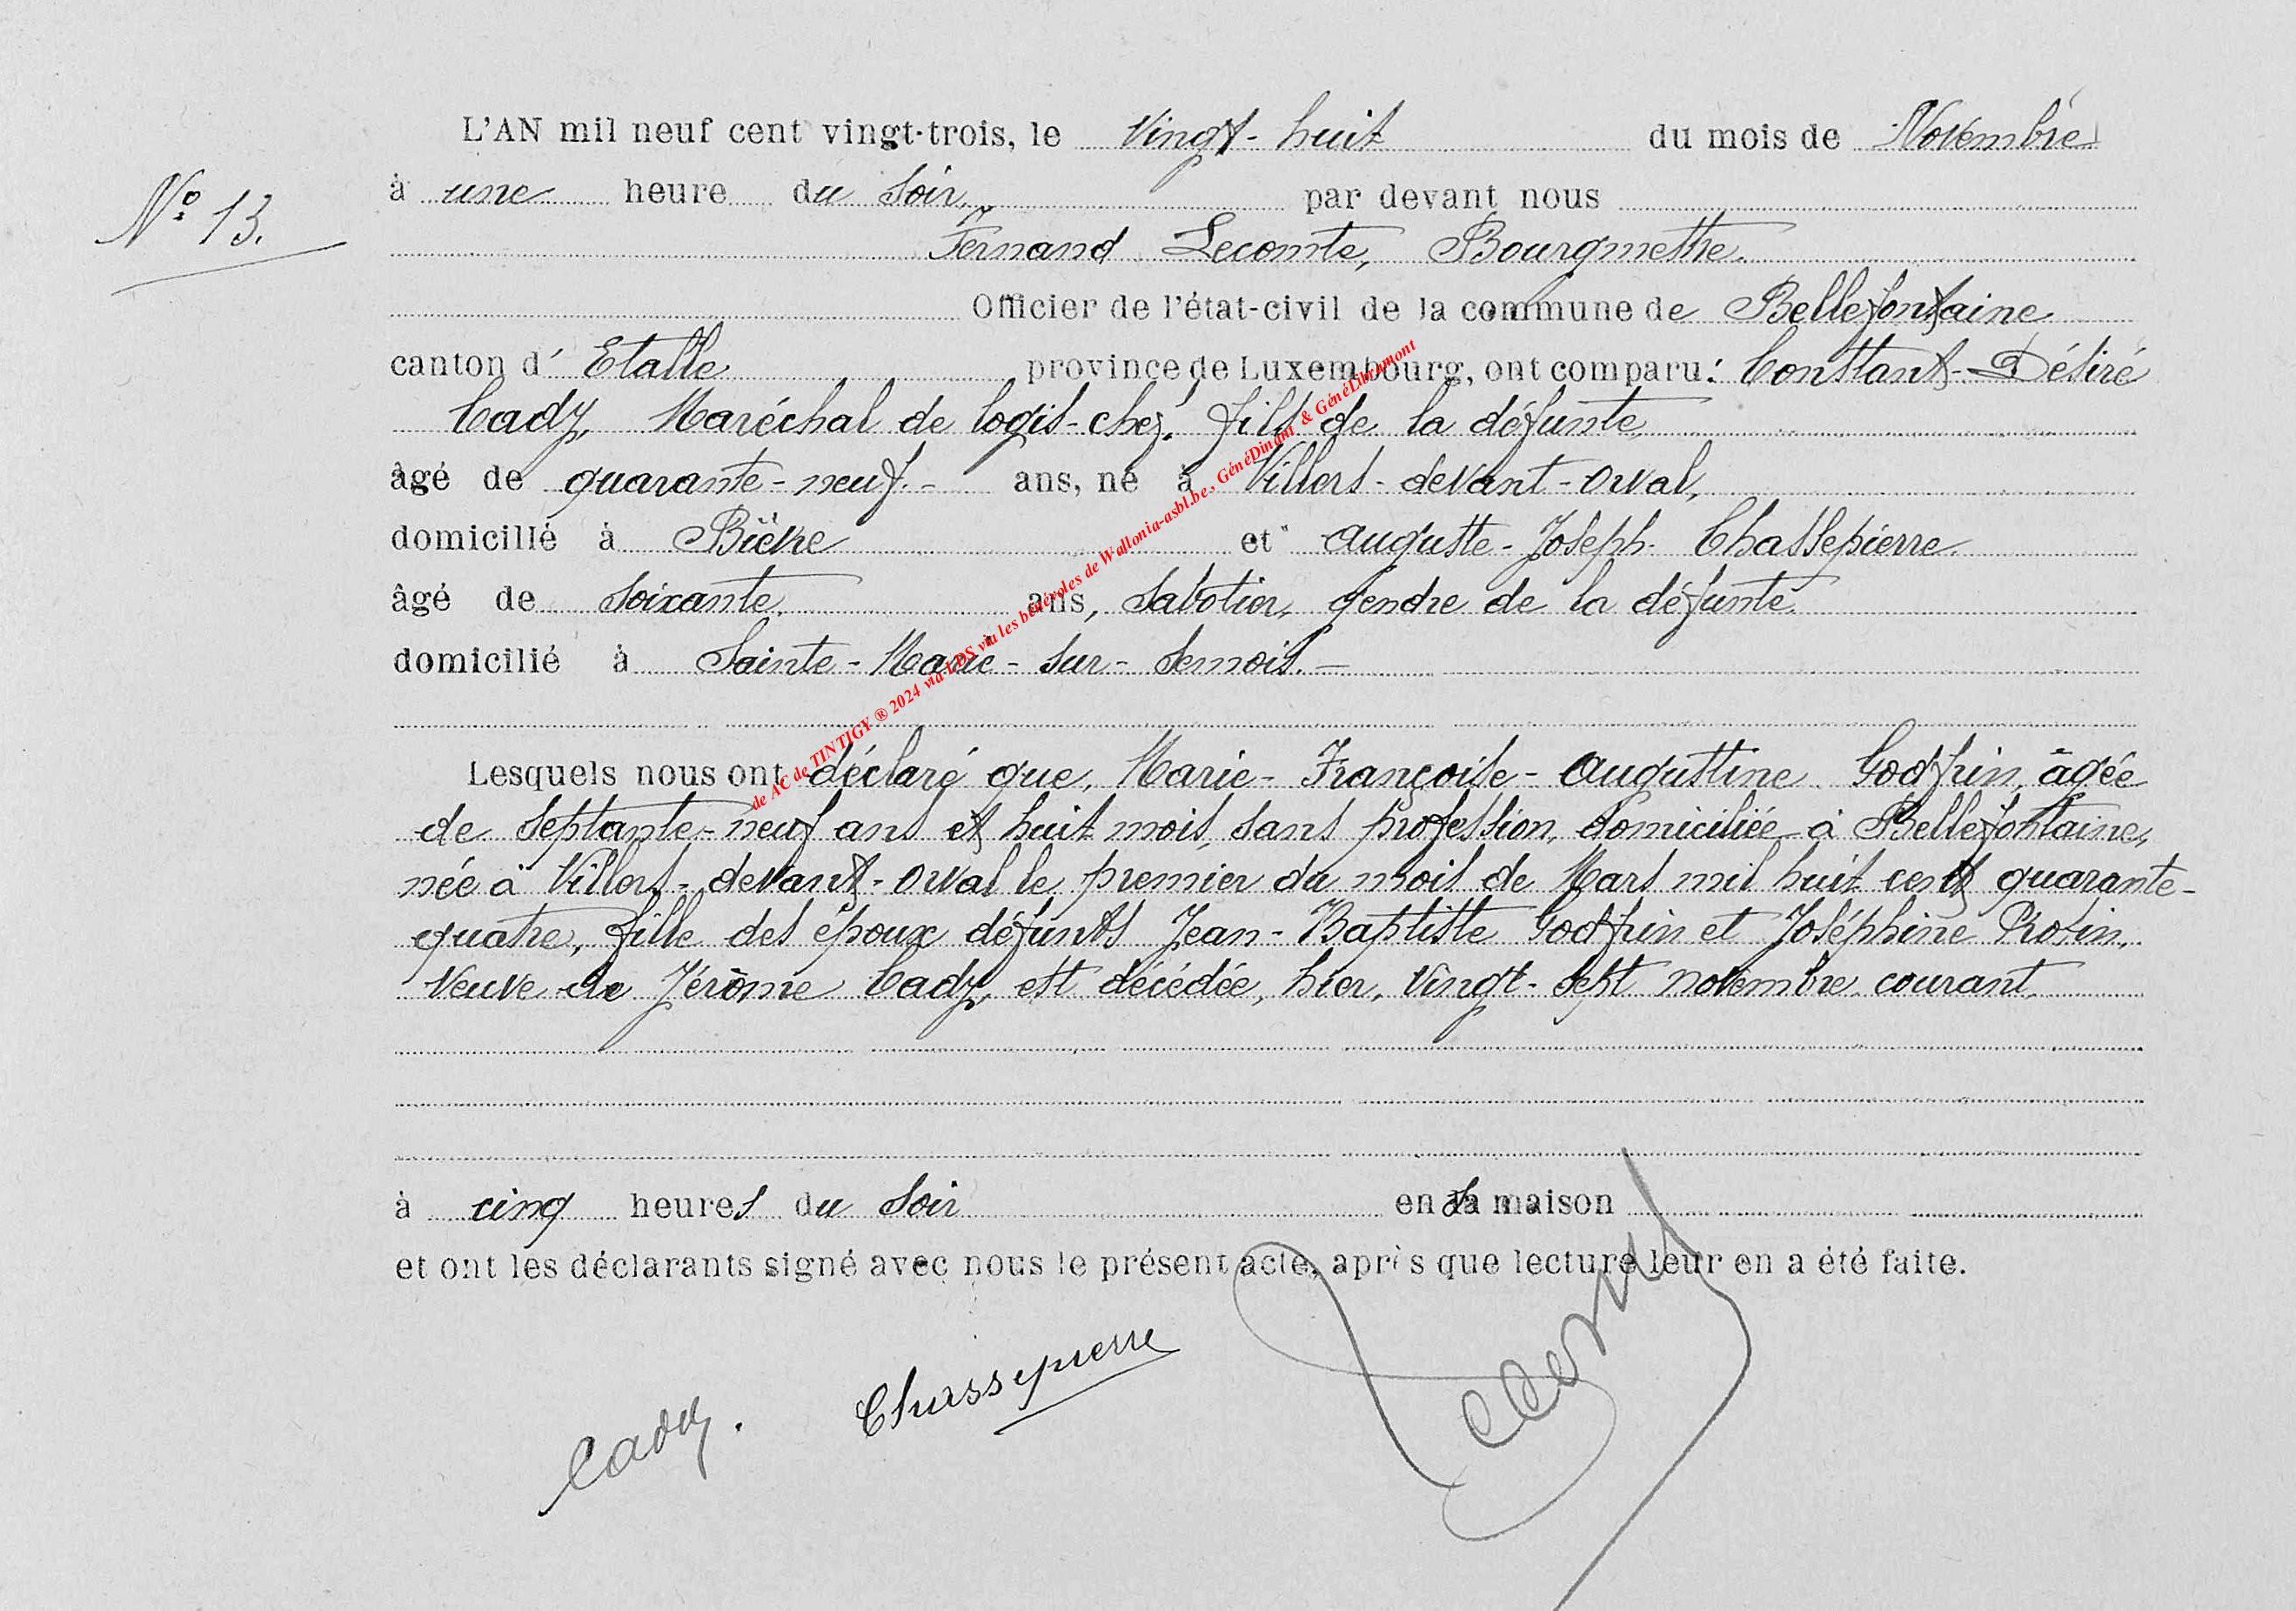 L'AN mil neuf cent vingt-trois, le Vingt-huit du mois de Novembre
N° 13.
à une heure du Soir, par devant nous
Fernand Lecomte, Bourgmestre.
Officier de l'état-civil de la commune de Bellefontaine
canton d' Etalle province de Luxembourg, ont comparu: Constant-Désiré
Cady, Maréchal de logis-chef, fils de la défunte,
âgé de quarante-neuf.- ans, né à Villers-devant-Orval,
domicilié à Bièvre et Auguste-Joseph Chassepierre
âgé de soixante, ans, Sabotier, gendre de la défunte.
domicilié à Sainte-Marie-sur-Semois.-
Lesquels nous ont déclaré que, Marie-Françoise-Augustine Godfrin, âgée
de septante-neuf ans et huit mois, sans profession, domiciliée à Bellefontaine,
née à Villers-devant-Orval le premier du mois de Mars mil huit cent quarante-
quatre, fille des époux défunts Jean-Baptiste Godfrin et Joséphine Rosin,
Veuve de Jérôme Cady, est décédée, hier, Vingt-sept novembre courant,
à cinq heures du Soir en sa maison
et ont les déclarants signé avec nous le présent acte, après que lecture leur en a été faite.
Cady.
Chassepierre
Lecomte
de AC de TINTIGY ® 2024 via LDS via les bénévoles de Wallonia-asbl.be, GénéDinant & GénéLibramont